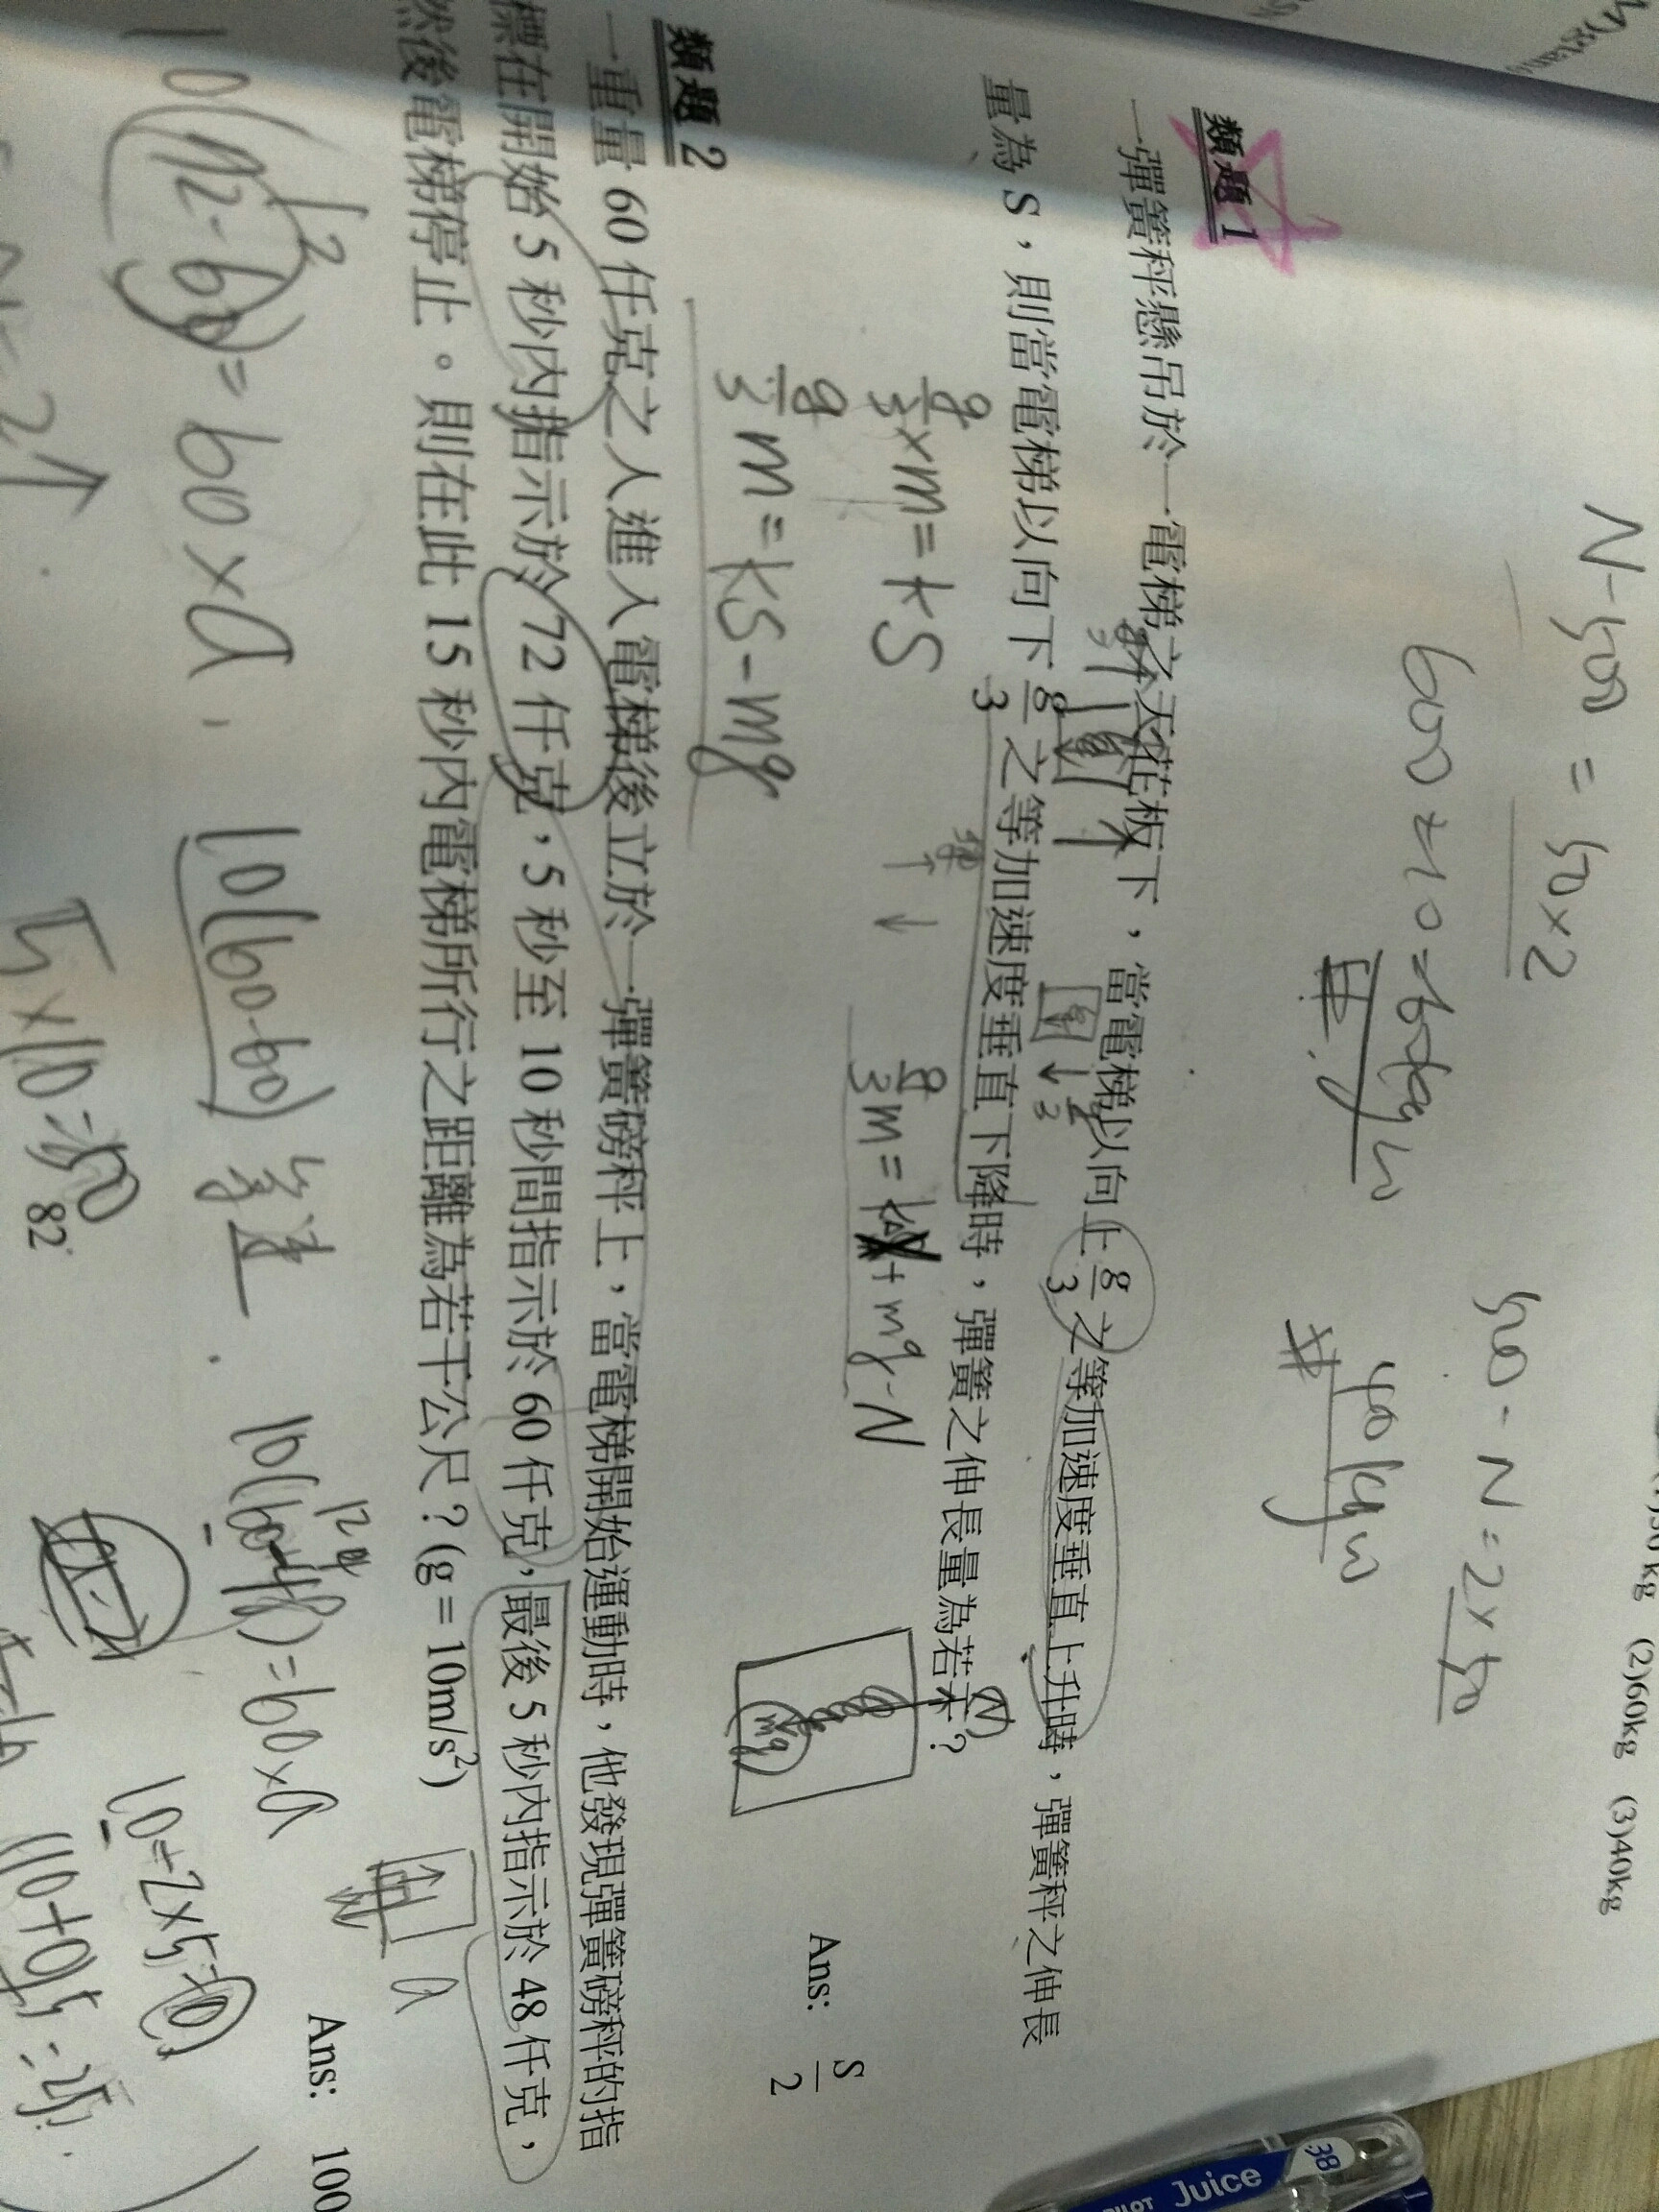 (2)60kg (3)40kg
N-500 = 50×2
500-N=2×50
40kgw
類題 1
一彈簧秤懸吊於一電梯之天花板下,當電梯以向上 g/3 之等加速度垂直上升時,彈簧秤之伸長
量為 S,則當電梯以向下 g/3 之等加速度垂直下降時,彈簧之伸長量為若干?
g/3 ×m = kS
g/3 m = kS-mg
mg
Ans: S/2
類題 2
一重量 60 仟克之人進入電梯後立於一彈簧磅秤上,當電梯開始運動時,他發現彈簧磅秤的指
標在開始 5 秒內指示於 72 仟克,5 秒至 10 秒間指示於 60 仟克,最後 5 秒內指示於 48 仟克,
然後電梯停止。則在此 15 秒內電梯所行之距離為若干公尺?(g = 10m/s²)
Ans: 100
12
10(72-60) = 60×a
10(60-60) 等速
12
10(60-48)=60×a
a
5×10=50
10=2×5
82
PILOT Juice 38